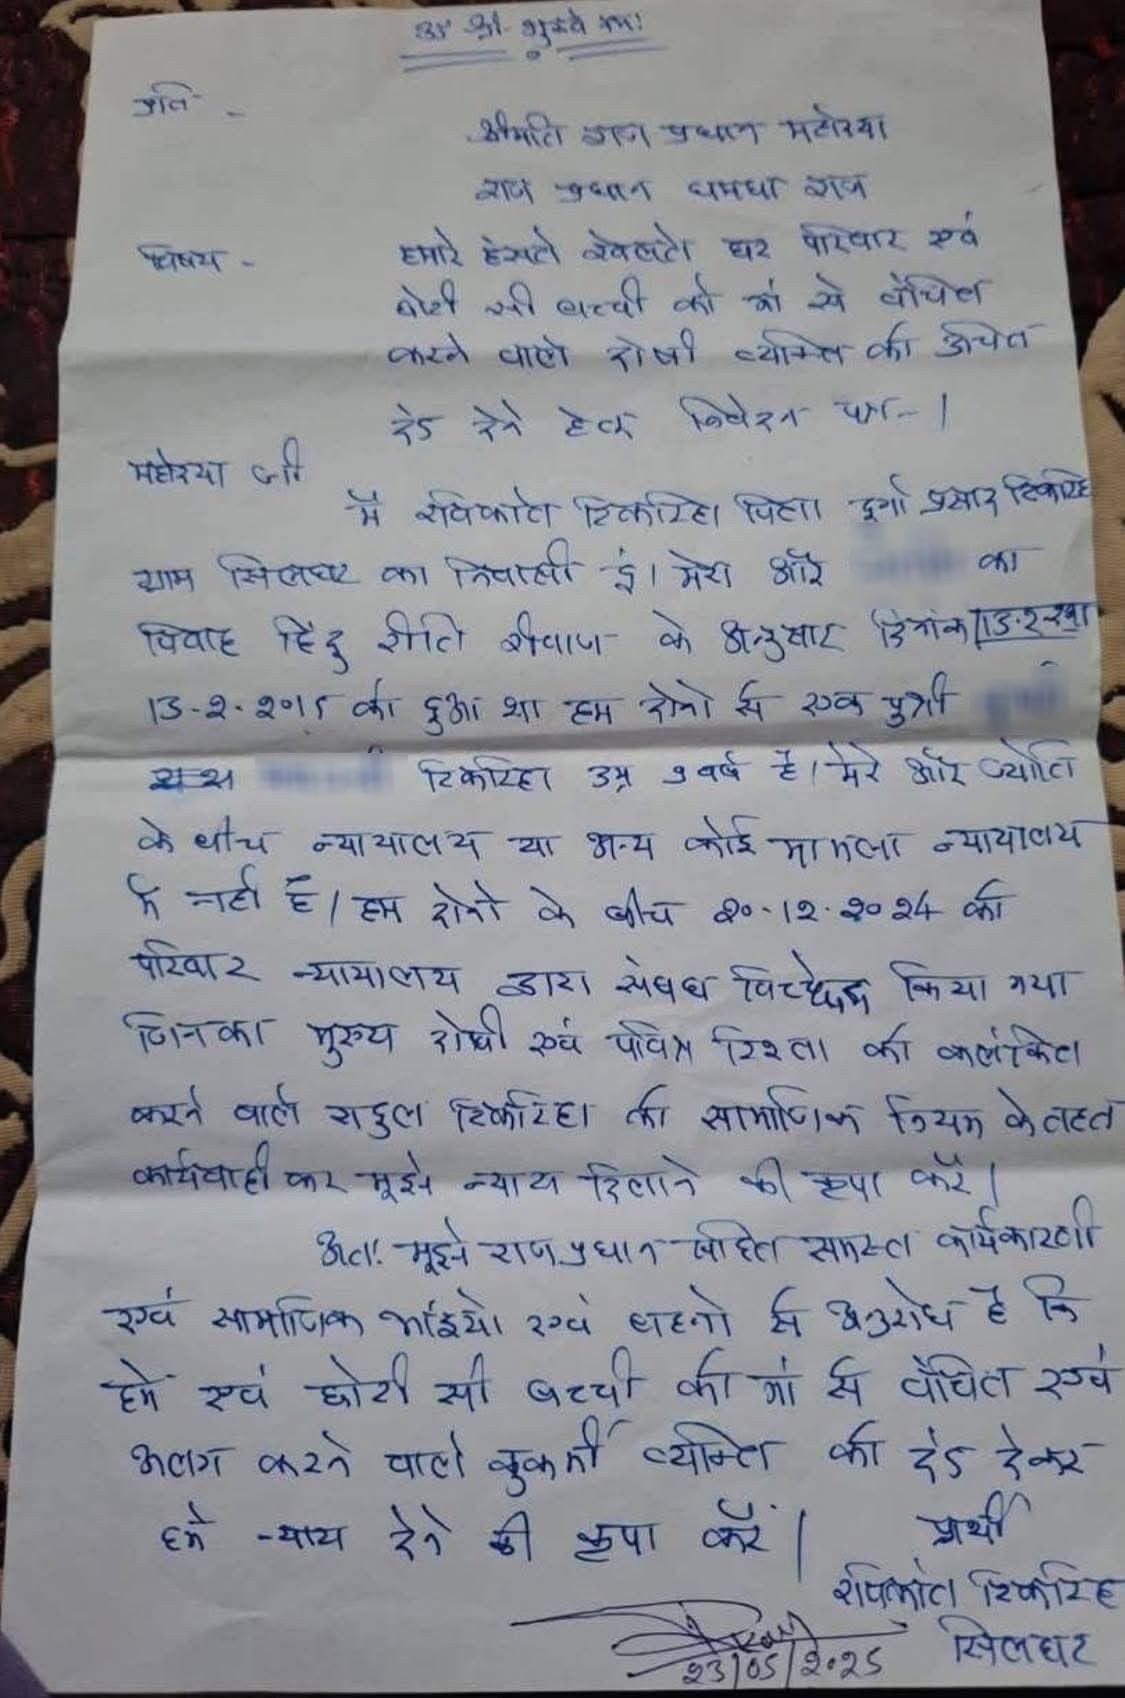 ॐ श्री गुरुवे नमः
प्रति -
श्रीमति राज प्रधान महोदया
राज प्रधान धमधा राज
विषय - हमारे हंसते खेलते घर परिवार एवं
छोटी सी बच्ची को मां से वंचित
करने वाले दोषी व्यक्ति को उचित
दंड देने हेतु निवेदन पत्र - ।
महोदया जी
मैं रविकांत टिकरिहा पिता दुर्गा प्रसाद टिकरिहा
ग्राम सिलघट का निवासी हूं। मेरा और का
विवाह हिंदु रीति रीवाज के अनुसार दिनांक 13.2.201
13.2.2015 को हुआ था हम दोनो से एक पुत्री
टिकरिहा उम्र 9 वर्ष है। मेरे और ज्योति
के बीच न्यायालय या अन्य कोई मामला न्यायालय
में नहीं है। हम दोनो के बीच 20.12.2024 को
परिवार न्यायालय द्वारा संबंध विच्छेद किया गया
जिनका मुख्य दोषी एवं पवित्र रिश्ता को कलंकित
करने वाले राहुल टिकरिहा को सामाजिक नियम के तहत
कार्यवाही कर मुझे न्याय दिलाने की कृपा करें।
अतः मुझे राज प्रधान सहित समस्त कार्यकारणी
एवं सामाजिक भाईयो एवं बहनो से अनुरोध है कि
हमे एवं छोटी सी बच्ची को मां से वंचित एवं
अलग करने वाले कुकर्मी व्यक्ति को दंड देकर
हमे न्याय देने की कृपा करें।
प्रार्थी
रविकांत टिकरिहा
सिलघट
23/05/2025